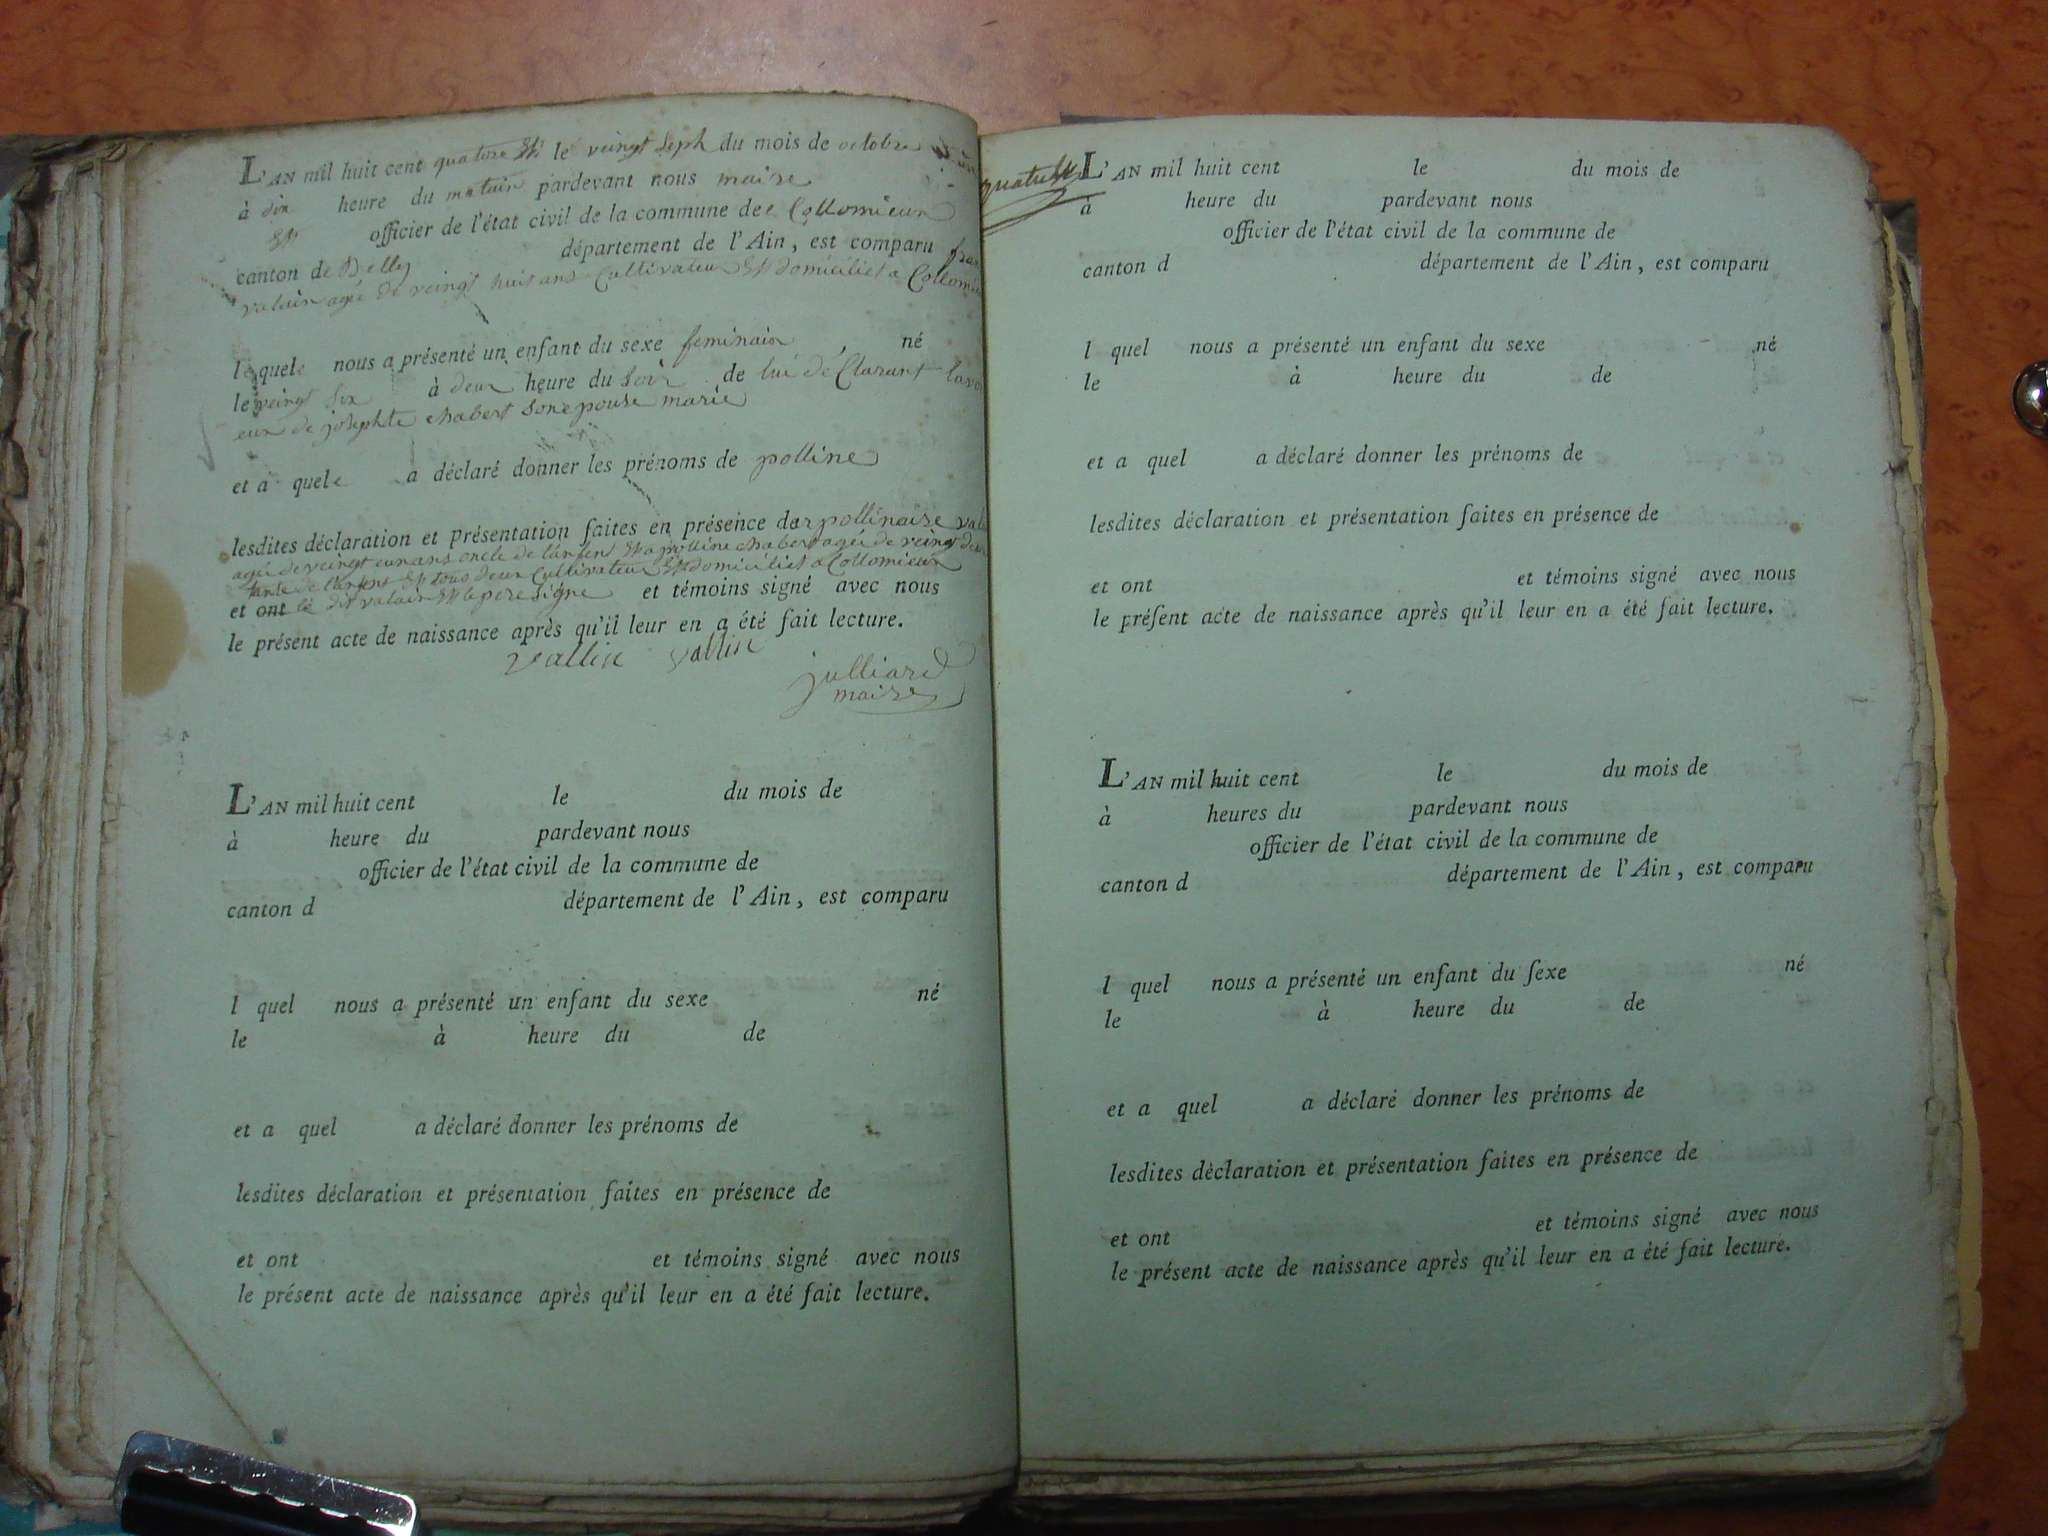 L'AN mil huit cent quatorse et le veingt sept du mois de octobre
à dix heure du matain pardevant nous maire
et officier de l'état civil de la commune dee Collomieux
canton de Belley département de l'Ain, est comparu
valain agée de veingt huit ans Cultivateur et domiciliet a Collomieu
lequele nous a présenté un enfant du sexe feminain né
le veingt six à deux heure du soir de lui déClarant
de josephte chabert son epouse marie
et a quele a déclaré donner les prénoms de polline
lesdites déclaration et présentation faites en présence der pollinaire
agée de veingt eun ans oncle de lanfent et apolline chabert agée de veingt deux
tante de lanfent et tous deux Cultivateur et domiciliet a Collomieux
et ont le dit valain et le pere signe et témoins signé avec nous
le présent acte de naissance après qu'il leur en a été fait lecture.
vallin vallin
julliard
maire
L'AN mil huit cent le du mois de
à heure du pardevant nous
officier de l'état civil de la commune de
canton d département de l'Ain, est comparu
l quel nous a présenté un enfant du sexe né
le à heure du de
et a quel a déclaré donner les prénoms de
lesdites déclaration et présentation faites en présence de
et ont et témoins signé avec nous
le présent acte de naissance après qu'il leur en a été fait lecture.
L'AN mil huit cent le du mois de
à heure du pardevant nous
officier de l'état civil de la commune de
canton d département de l'Ain, est comparu
l quel nous a présenté un enfant du sexe né
le à heure du de
et a quel a déclaré donner les prénoms de
lesdites déclaration et présentation faites en présence de
et ont et témoins signé avec nous
le préſent acte de naissance après qu'il leur en a été fait lecture.
L'AN mil huit cent le du mois de
à heures du pardevant nous
officier de l'état civil de la commune de
canton d département de l'Ain, est comparu
l quel nous a présenté un enfant du ſexe né
le à heure du de
et a quel a déclaré donner les prénoms de
lesdites déclaration et présentation faites en présence de
et ont et témoins signé avec nous
le présent acte de naissance après qu'il leur en a été fait lecture.